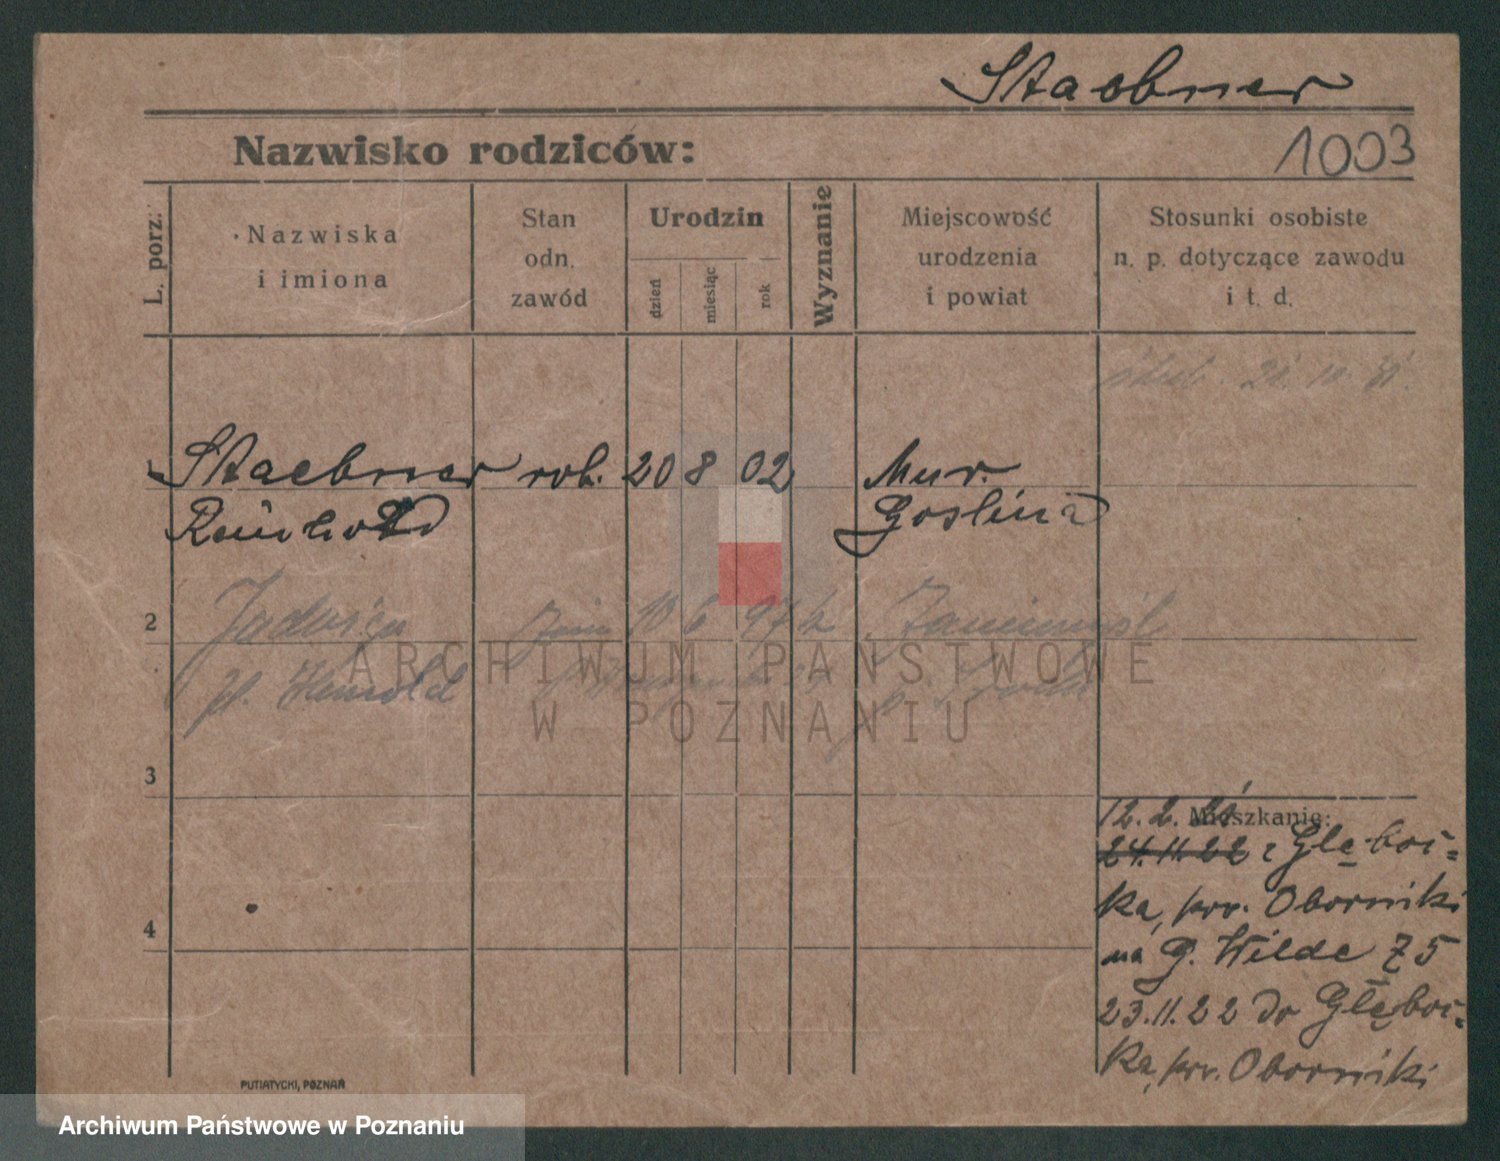 Staebner
Nazwisko rodziców:
1003
L. porz.
Nazwiska
i imiona
Stan
odn.
zawód
Urodzin
dzień
miesiąc
rok
Wyznanie
Miejscowość
urodzenia
i powiat
Stosunki osobiste
n. p. dotyczące zawodu
i t. d.
1 Staebner rob. 20 8 02 Mur.
Reinhold Goslina
2 Jadwiga 10 6
3
4
12.2.
Mieszkanie:
24.11.22 z Głęboi=
ka, pow. Oborniki
na G. Wilde 75
23.11.22 do Głęboi=
ka, pow. Oborniki
PUTIATYCKI, POZNAŃ
ARCHIWUM PAŃSTWOWE
W POZNANIU
Archiwum Państwowe w Poznaniu